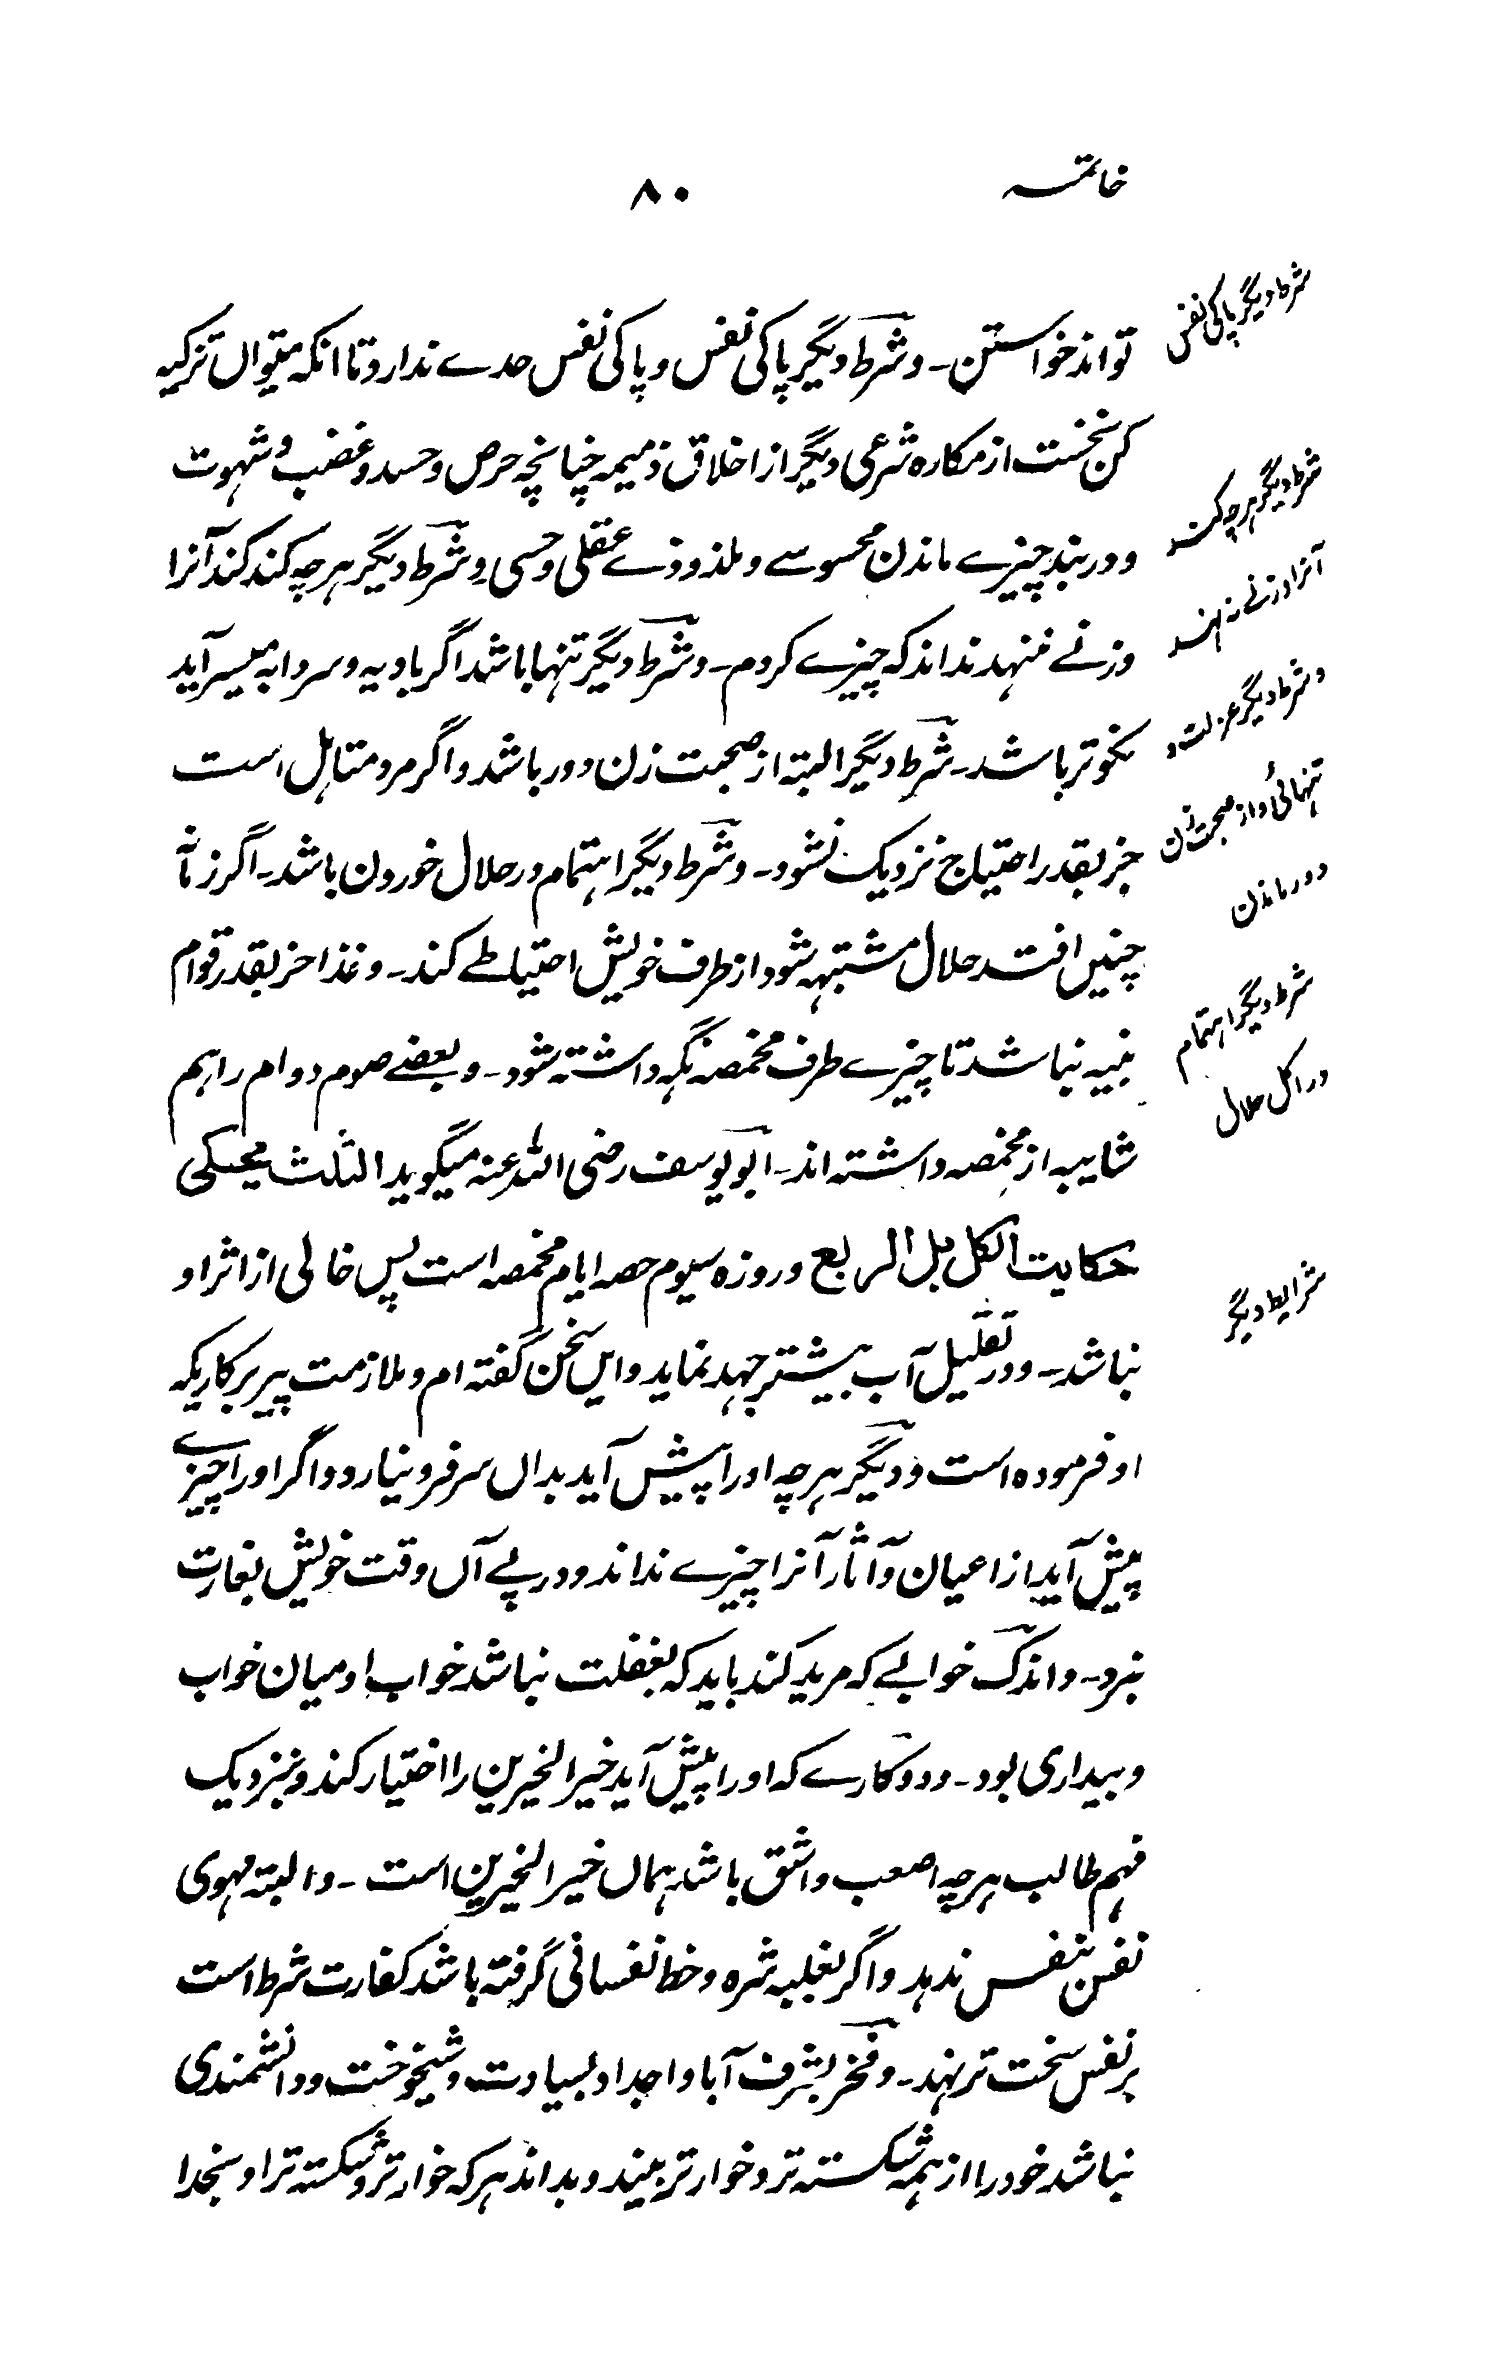 خاتمہ
۸۰
شرط دیگر پاکی نفس
تواند خواستن۔ و شرط دیگر پاکی نفس و پاکی نفس حدے ندارد تا انکہ میتواں تزکیہ
کن نخست از مکارہ شرعی دیگر از اخلاق ذمیمہ چنانچہ حرص و حسد و غضب و شہوت
شرط دیگر ہرچہ کند
و در بند چیزے ماندن محسوسے و ملذوذے عقلی و حسی و شرط دیگر ہرچہ کند کند آنرا
آنرا وزنے نہ نہند
وزنے ننہد نداند کہ چیزے کردم۔ و شرط دیگر تنہا باشد اگر بادیہ و سردابہ میسر آید
و شرط دیگر عزلت و
نکو تر باشد۔ شرط دیگر البتہ از صحبت زن دور باشد و اگر مرد متاہل است
تنہائی و از صحبت زن
جز بقدر احتیاج نزدیک نشود۔ و شرط دیگر اہتمام در حلال خوردن باشد۔ اگر زمانہ
دور ماندن
چنیں افتد حلال مشتبہ شود از طرف خویش احتیاطے کند۔ و غذا جز بقدر قوام
شرط دیگر اہتمام
بنیہ نباشد تا چیزے طرف مخمصہ نگہ داشتہ شود۔ و بعضے صوم دوام را ہم
در اکل حلال
شایبہ از مخمصہ داشتہ اند۔ ابو یوسف رضی اللہ عنہ میگوید الثلث یحکی
حکایت الکل بل الربع و روزہ سیوم حصہ ایام مخمصہ است پس خالی از اثر او
شرایط دیگر
نباشد۔ و در تقلیل آب بیشتر جہد نماید و ایں سخن گفتہ ام و ملازمت پیر بر کاریکہ
او فرمودہ است و دیگر ہرچہ اورا پیش آید بداں سر فرو نیارد و اگر اورا چیزے
پیش آید از اعیان و آثار آنرا چیزے نداند و در پے آں وقت خویش بغارت
نبرد۔ و اندک خوابے کہ مرید کند باید کہ بغفلت نباشد خواب او میان خواب
و بیداری بود۔ و دو کارے کہ اورا پیش آید خیر الخیرین را اختیار کند و بنزدیک
فہم طالب ہرچہ اصعب و اشق باشد ہماں خیر الخیرین است۔ و البتہ مہوی
نفس بنفس ندہد و اگر بغلبہ شرہ و خط نفسانی گرفتہ باشد کفارت شرط است
بر نفس سخت تر نہد۔ و فخر بشرف آبا و اجداد بسیادت و شیخوخت و دانشمندی
نباشد خود را از ہمہ شکستہ تر و خوار تر بیند و بداند ہر کہ خوار تر و شکستہ تر او بخدا